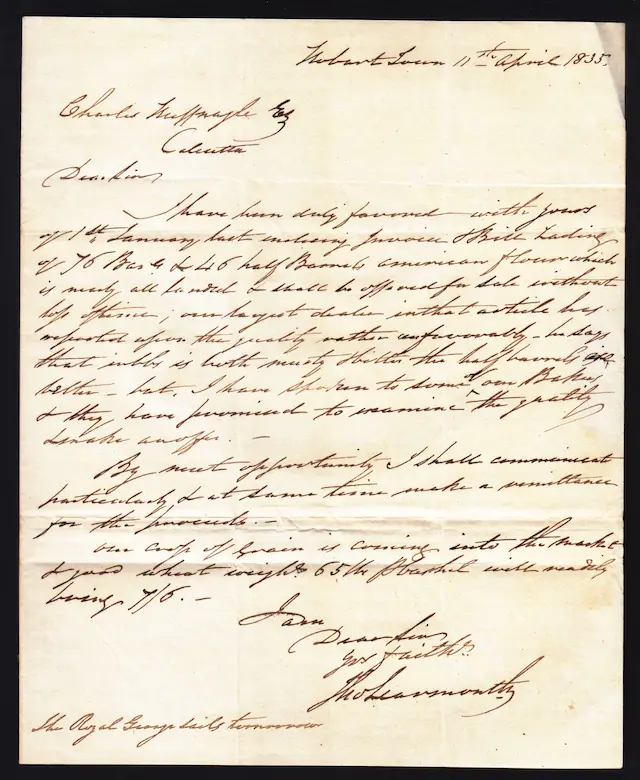 Hobart Town 11th April 1835.
Charles Huffnagle Esq
Calcutta
Dear Sir
I have been duly favored with yours
of 1st January last enclosing Invoice & Bill Lading
of 76 Bar & 46 half Barrels american flour which
is nearly all landed & shall be offered for sale without
loss of time; our largest dealer in that article has
reported upon the quality rather unfavorably - he says
that in bbls is both musty & bitter the half barrels are
better - but, I have spoken to some of our Bakers
& they have promised to examine the quality
& make an offer. -
By next opportunity I shall communicate
particularly & at same time make a remittance
for the proceeds. -
our crop of Grain is coming into the market
& good wheat weighg 65 lbs P bushel will readily
bring 7/6. -
I am
Dear Sir
yrs faithy
Tho Learmonth
the Royal George sails tomorrow